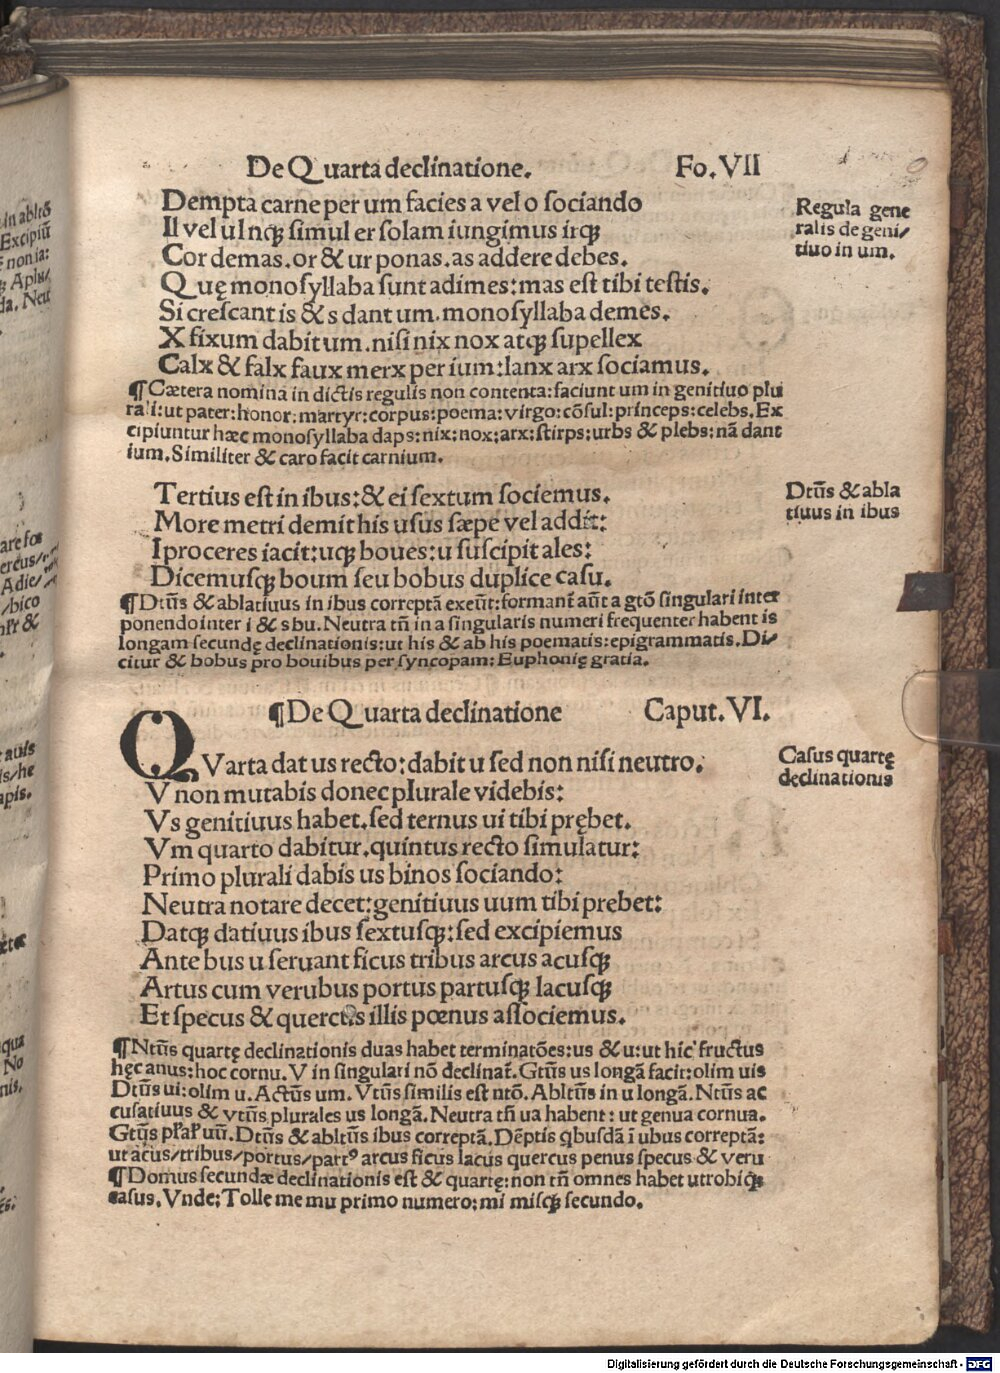 De Quarta declinatione. Fo. VII
Dempta carne per um facies a vel o sociando
Il vel ul nqꝫ simul er solam iungimus irqꝫ
Cor demas. or & ur ponas. as addere debes.
Quę monosyllaba sunt adimes: mas est tibi testis.
Si crescant is & s dant um. monosyllaba demes.
X fixum dabit um. nisi nix nox atqꝫ supellex
Calx & falx faux merx per ium: lanx arx sociamus.
Regula gene
ralis de geni/
tiuo in um.
¶ Cætera nomina in dictis regulis non contenta: faciunt um in genitiuo plu
rali: ut pater: honor: martyr: corpus: poema: virgo: cōsul: princeps: celebs. Ex
cipiuntur hæc monosyllaba daps: nix: nox: arx: stirps: urbs & plebs: nā dant
ium. Similiter & caro facit carnium.
Tertius est in ibus: & ei sextum sociemus.
More metri demit his usus sæpe vel addit:
I proceres iacit: uqꝫ boues: u suscipit ales:
Dicemusqꝫ boum seu bobus duplice casu.
Dtūs & abla
tiuus in ibus
¶ Dtūs & ablatiuus in ibus correptā exeūt: formant̄ aūt a gtō singulari inter
ponendo inter i & s bu. Neutra tn̄ in a singularis numeri frequenter habent is
longam secundę declinationis: ut his & ab his poematis: epigrammatis. Di/
citur & bobus pro bouibus per syncopam: Euphonię gratia.
¶ De Quarta declinatione Caput. VI.
QVarta dat us recto: dabit u sed non nisi neutro.
V non mutabis donec plurale videbis:
Vs genitiuus habet. sed ternus ui tibi prębet.
Vm quarto dabitur. quintus recto simulatur:
Primo plurali dabis us binos sociando:
Neutra notare decet: genitiuus uum tibi prebet:
Datqꝫ datiuus ibus sextusqꝫ: sed excipiemus
Ante bus u seruant ficus tribus arcus acusqꝫ
Artus cum verubus portus partusqꝫ lacusqꝫ
Et specus & quercus illis pœnus associemus.
Casus quartę
declinationis
¶ Ntūs quartę declinationis duas habet terminatōes: us & u: ut hic fructus
hęc anus: hoc cornu. V in singulari nō declinat̄. Gtūs us longā facit: olim uis
Dtūs ui: olim u. Actūs um. Vtūs similis est ntō. Abltūs in u longā. Ntūs ac
cusatiuus & vtūs plurales us longā. Neutra tn̄ ua habent: ut genua cornua.
Gtūs pl̄ar̄ uū. Dtūs & abltūs ibus correptā. Dēptis qbusdā ī ubus correptā:
ut acus/tribus/portus/partꝰ arcus ficus lacus quercus penus specus & veru
¶ Domus secundæ declinationis est & quartę: non tn̄ omnes habet utrobiqꝫ
casus. Vnde: Tolle me mu primo numero: mi misqꝫ secundo.
Digitalisierung gefördert durch die Deutsche Forschungsgemeinschaft - DFG